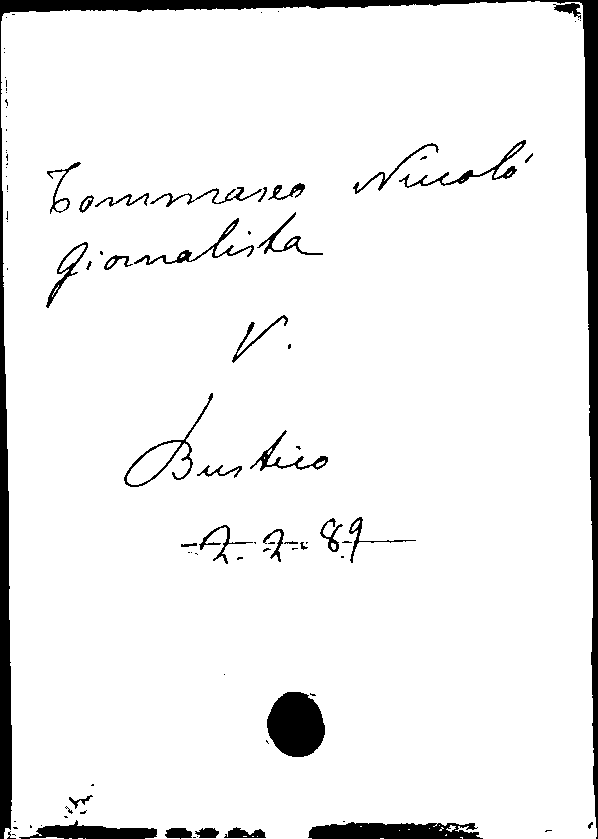 Tommaseo Niccolò
giornalista
V.
Bustico
2.2.89